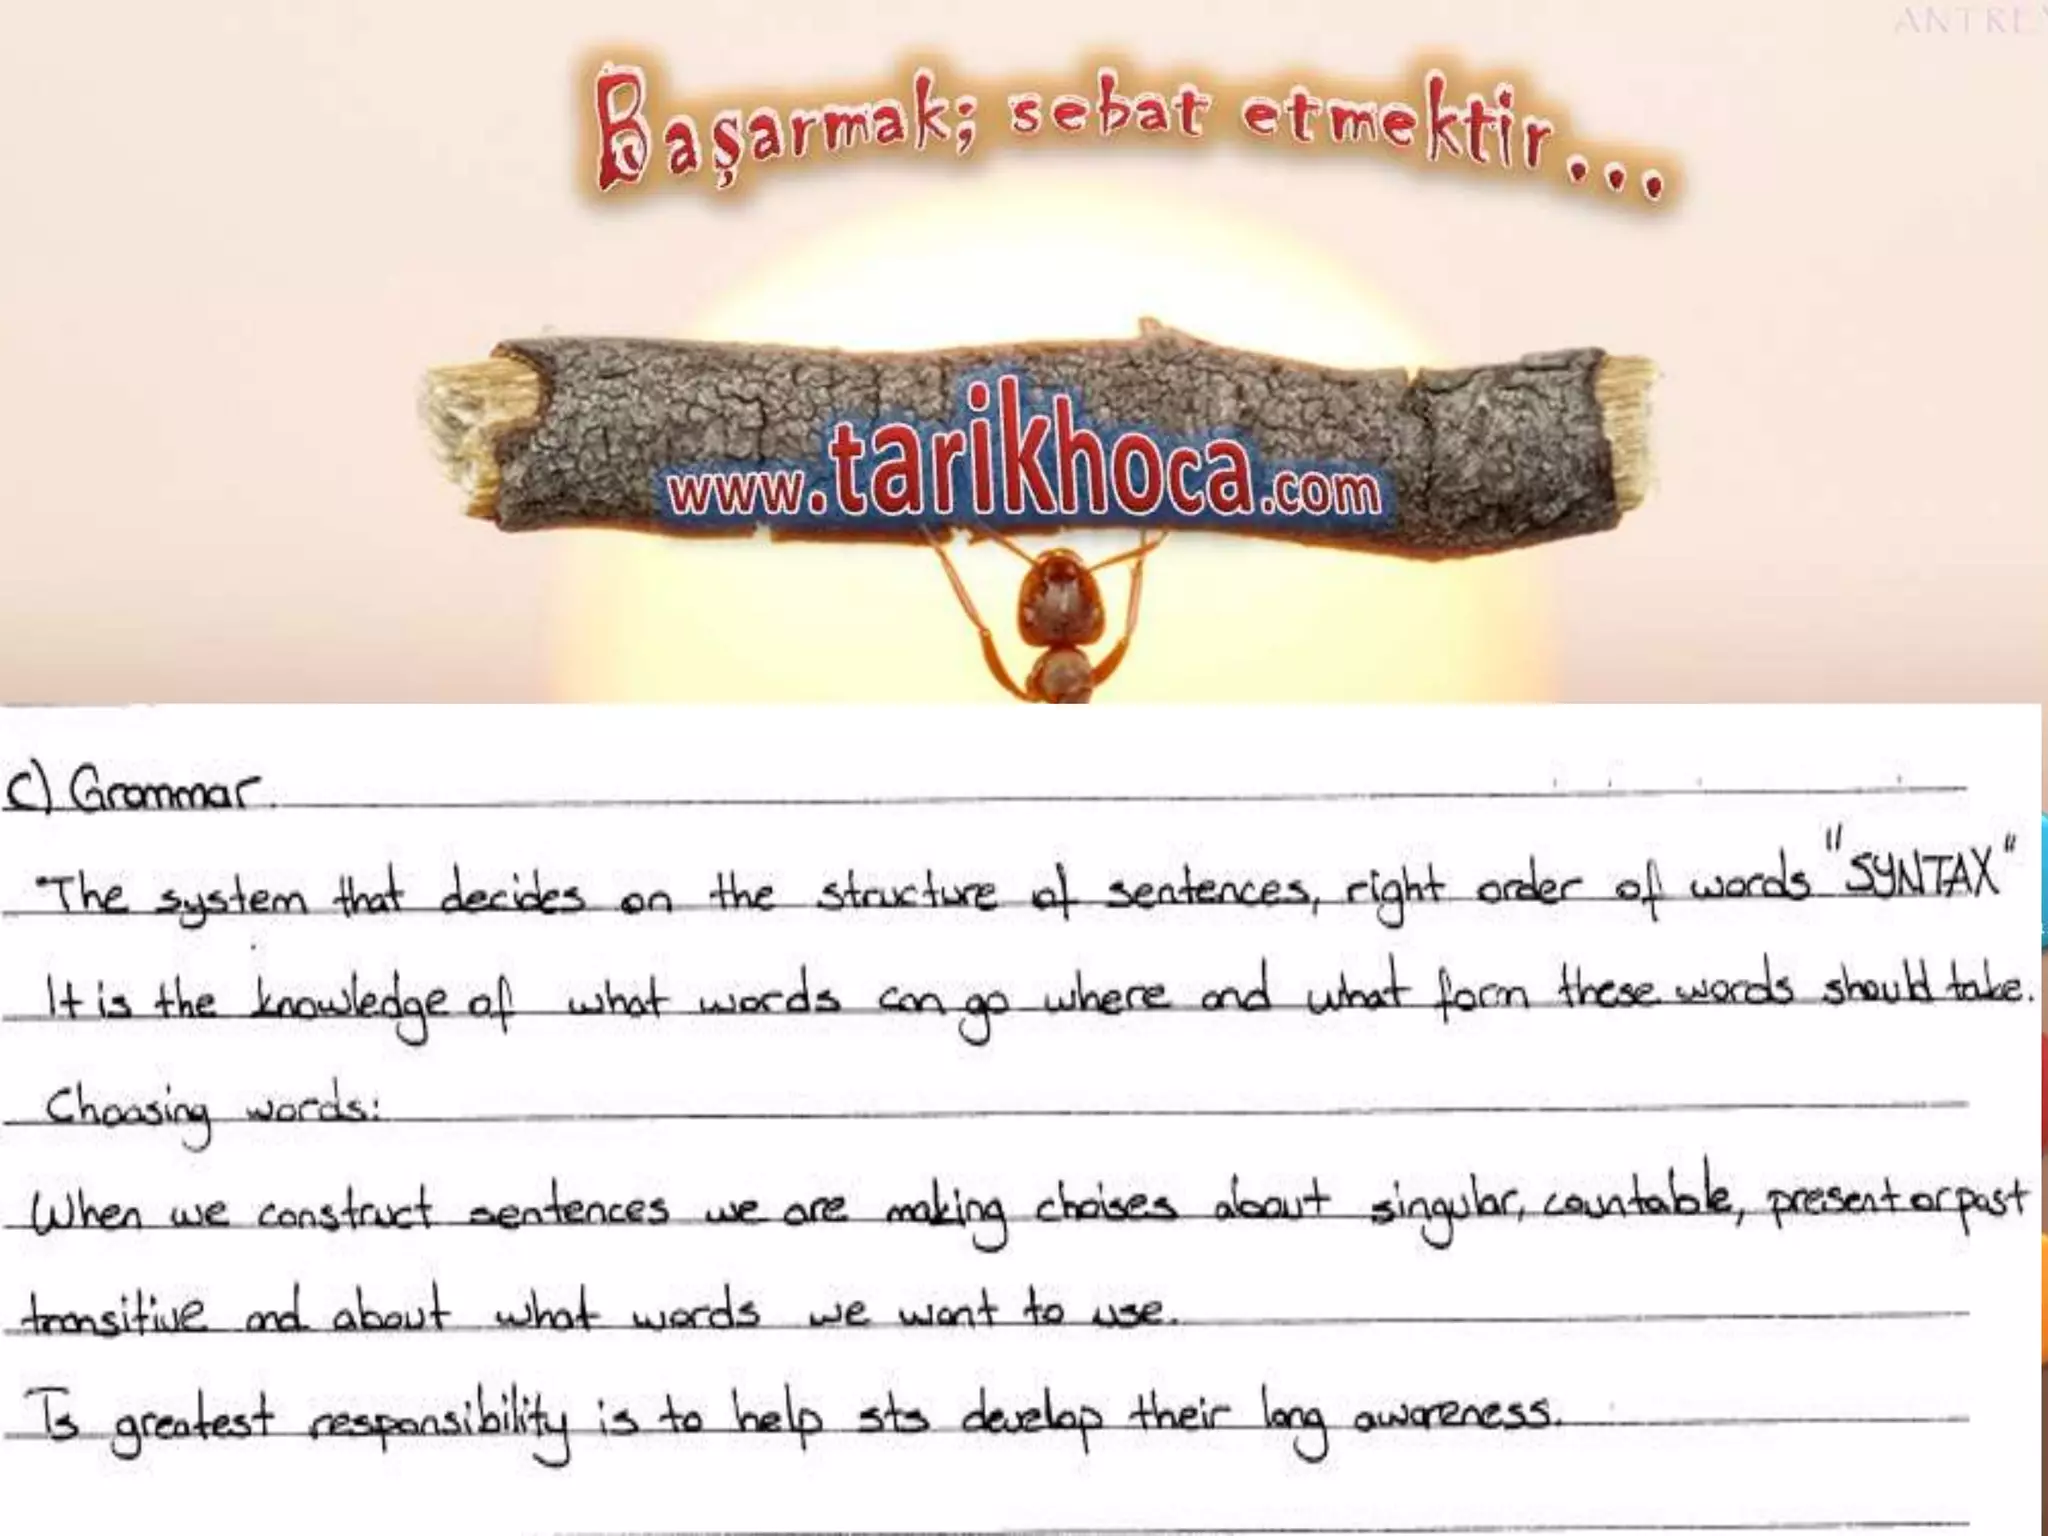 ANTRE
Başarmak; sebat etmektir...
www.tarikhoca.com
C) Grammar
The system that decides on the structure of sentences, right order of words "SYNTAX"
It is the knowledge of what words can go where and what form these words should take.
Choosing words:
When we construct sentences we are making choises about singular, countable, present or past
transitive and about what words we want to use.
Ts greatest responsibility is to help sts develop their lang awareness.